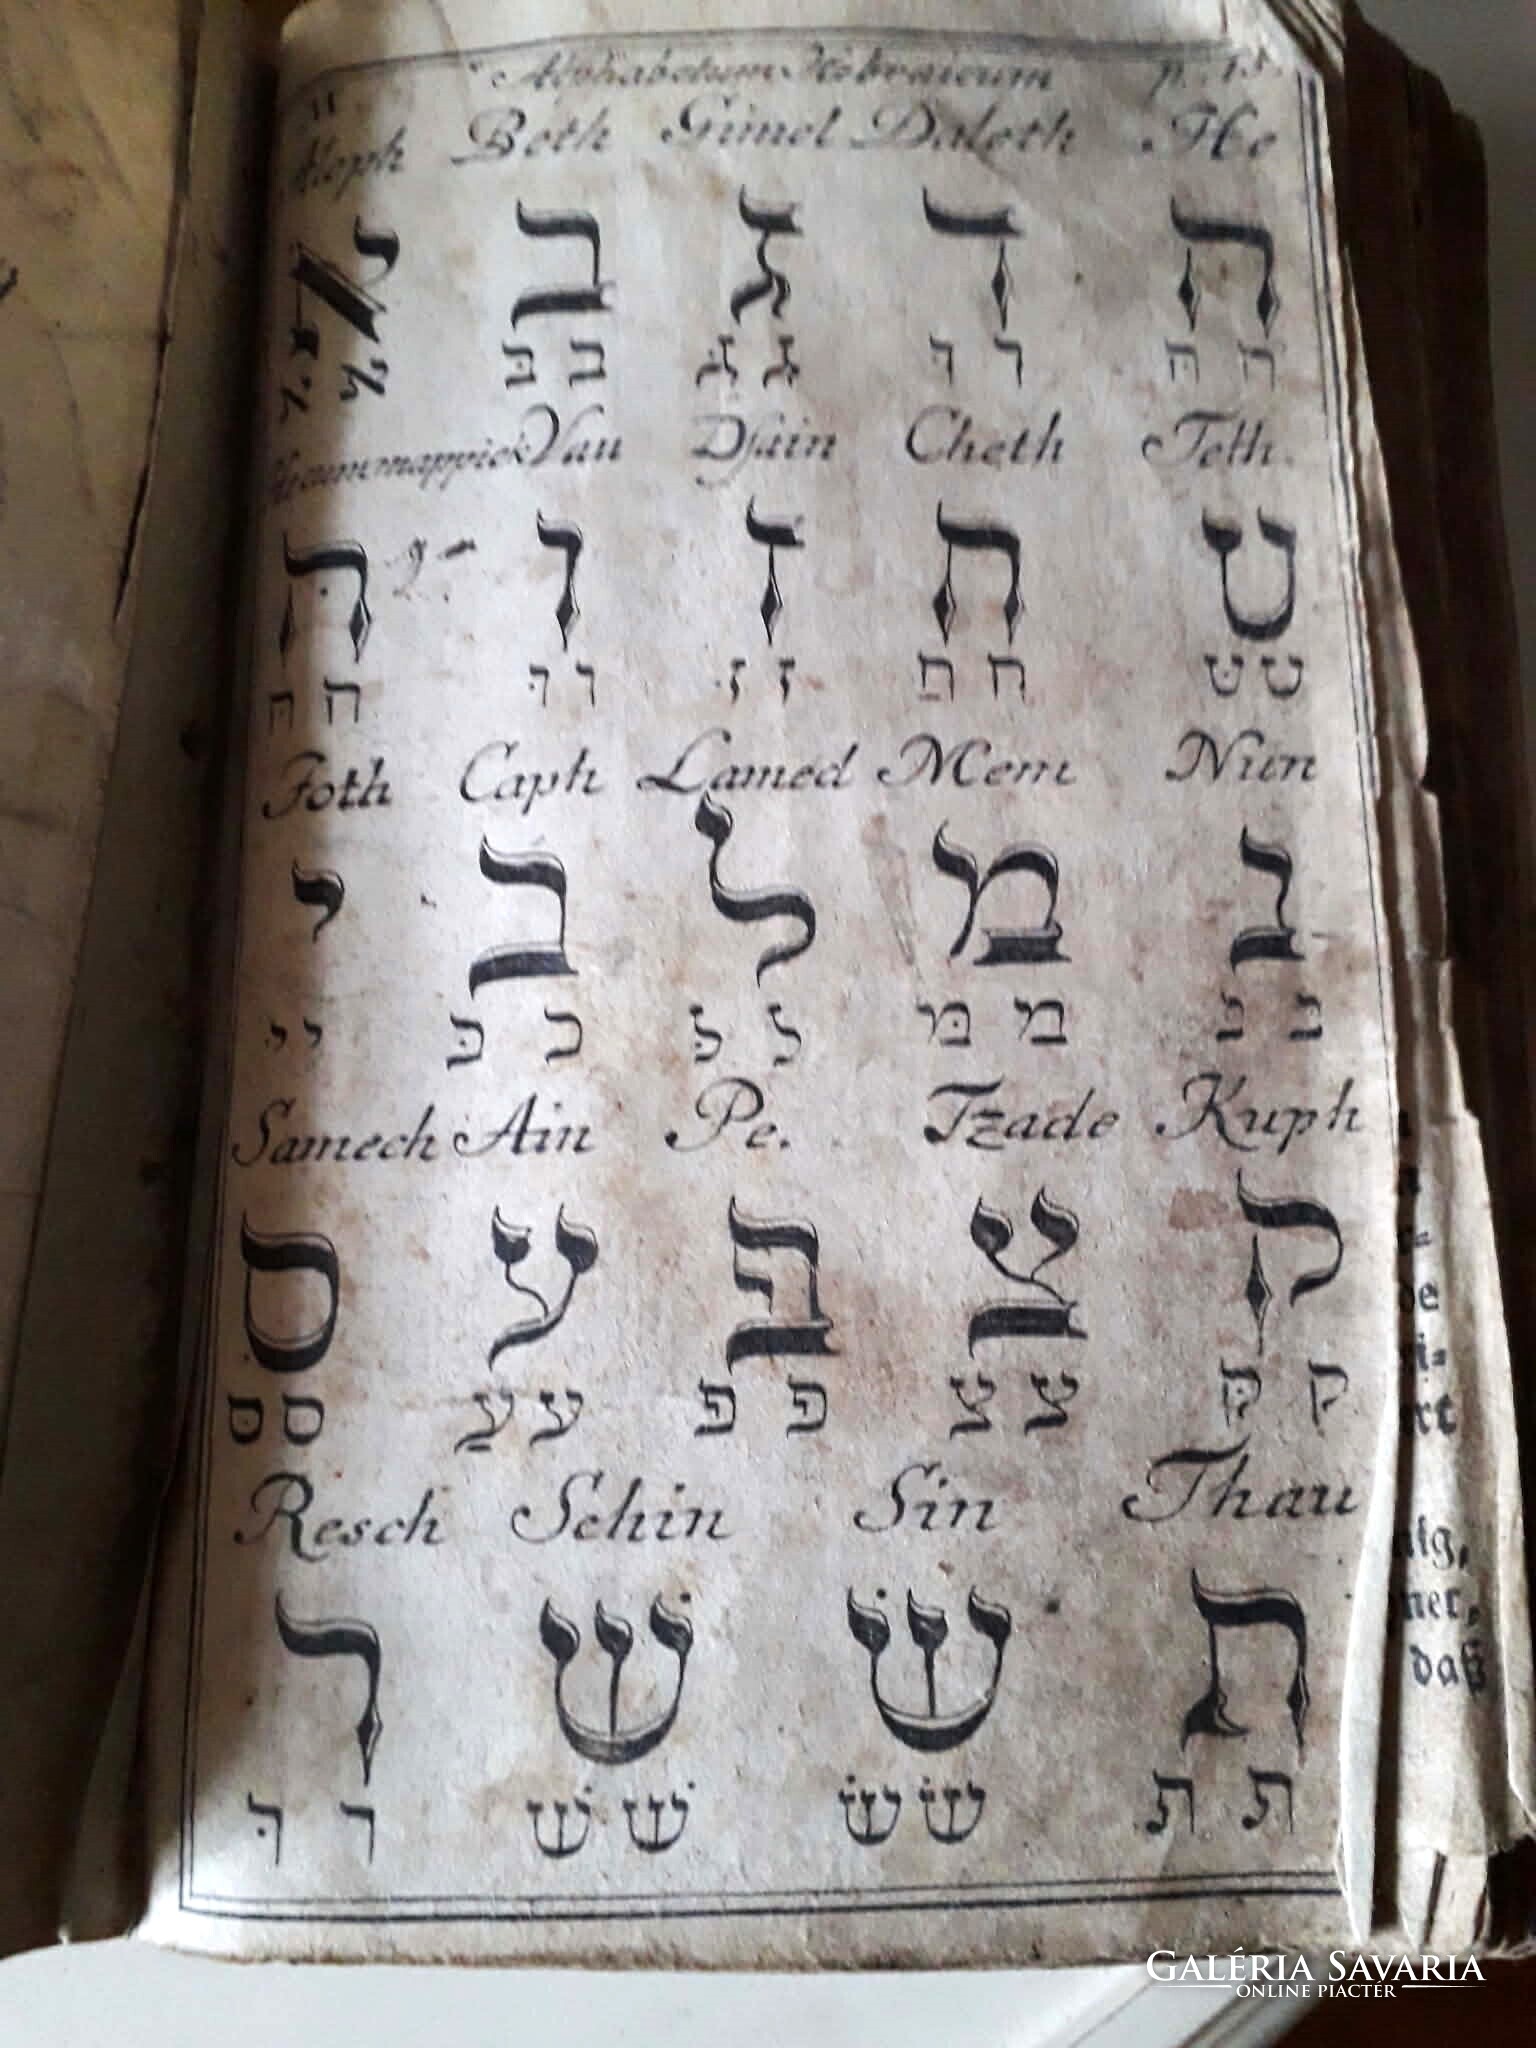 11 Alphabetum Hebraicum p. 15.
Aleph Beth Gimel Daleth He
א ב ג ד ה
א א בּ ב גּ ג דּ ד הּ ה
Vau Dsain Cheth Teth.
הּ ו ז ח ט
הּ ה וּ ו זּ ז ח ח טּ ט
Joth Caph Lamed Mem Nun
י כ ל מ נ
יּ י כּ כ לּ ל מּ מ נּ נ
Samech Ain Pe. Tzade Kuph
ס ע פ צ ק
סּ ס ע ע פּ פ צּ צ קּ ק
Resch Schin Sin Thau
ר שׁ שׂ ת
רּ ר שּׁ שׁ שּׂ שׂ תּ ת
de
ig,
ner,
daß
GALÉRIA SAVARIA
ONLINE PIACTÉR